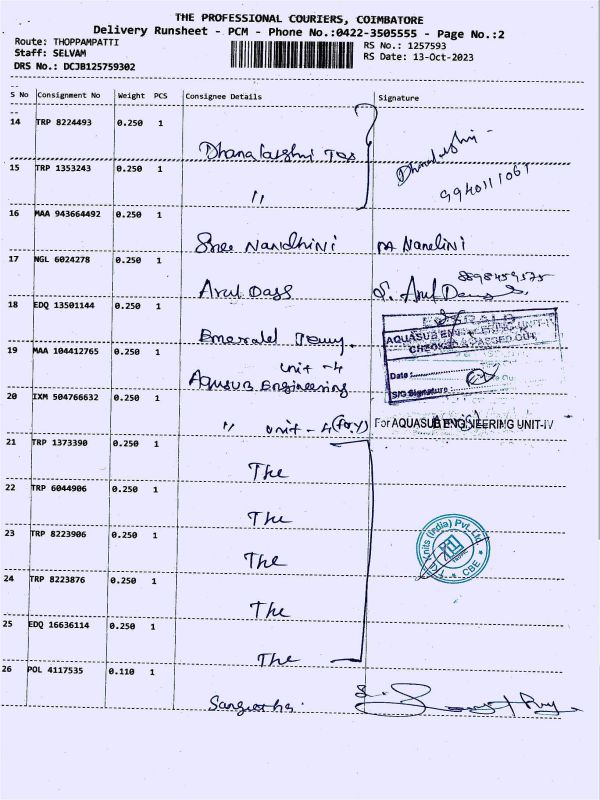 THE PROFESSIONAL COURIERS, COIMBATORE
Delivery Runsheet - PCM - Phone No.:0422-3505555 - Page No.:2
Route: THOPPAMPATTI
Staff: SELVAM
DRS No.: DCJB125759302
RS No.: 1257593
RS Date: 13-Oct-2023
S No Consignment No Weight PCS Consignee Details Signature
14 TRP 8224493 0.250 1
Dhanalakshmi Tex
15 TRP 1353243 0.250 1
"
16 MAA 943664492 0.250 1
Sree Nandhini
17 NGL 6024278 0.250 1
Arul Dass
8898459575
18 EDQ 13501144 0.250 1
Emerald
AQUASUB ENGINEERING UNIT-IV
CHECKED & PASSED OUT
Date :
S/G Signature :
19 MAA 104412765 0.250 1
unit - 4
Aquasub Engineering
20 IXM 504766632 0.250 1
" unit - 4
For AQUASUB ENGINEERING UNIT-IV
21 TRP 1373390 0.250 1
The
22 TRP 6044906 0.250 1
The
23 TRP 8223906 0.250 1
The
24 TRP 8223876 0.250 1
The
25 EDQ 16636114 0.250 1
The
Units (India) Pvt. Ltd.
CBE
26 POL 4117535 0.110 1
Sangeetha